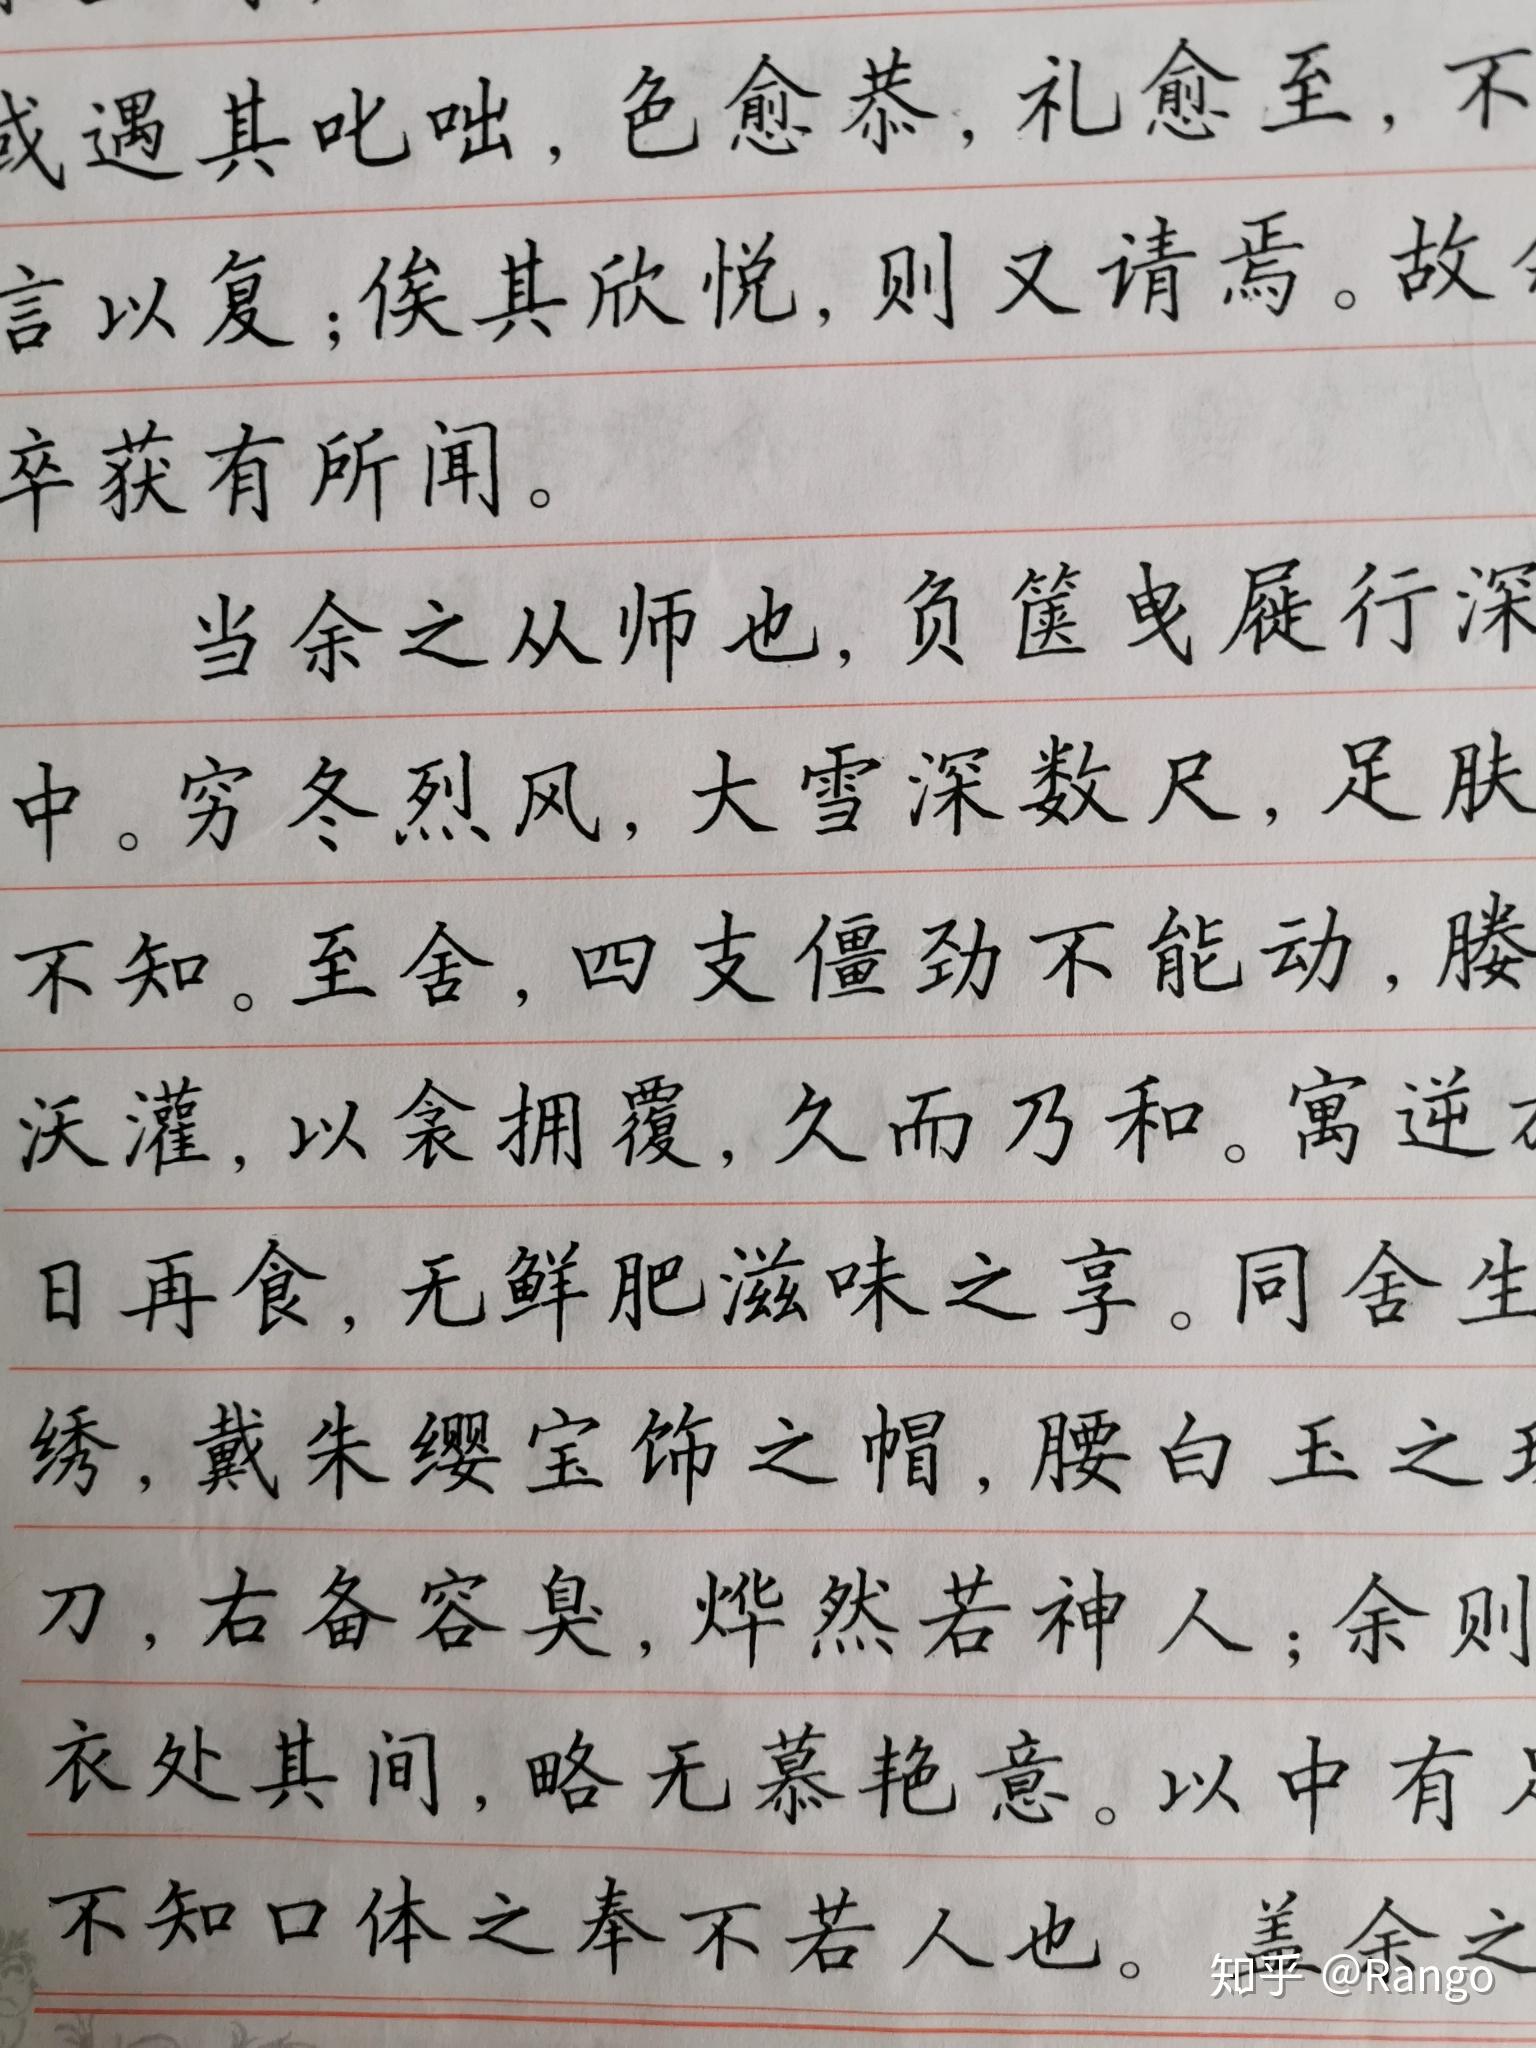 或遇其叱咄，色愈恭，礼愈至，不
言以复；俟其欣悦，则又请焉。故
卒获有所闻。
当余之从师也，负箧曳屣行深
中。穷冬烈风，大雪深数尺，足肤
不知。至舍，四支僵劲不能动，媵
沃灌，以衾拥覆，久而乃和。寓逆
日再食，无鲜肥滋味之享。同舍生
绣，戴朱缨宝饰之帽，腰白玉之
刀，右备容臭，烨然若神人；余则
衣处其间，略无慕艳意。以中有
不知口体之奉不若人也。盖余之
知乎 @Rango